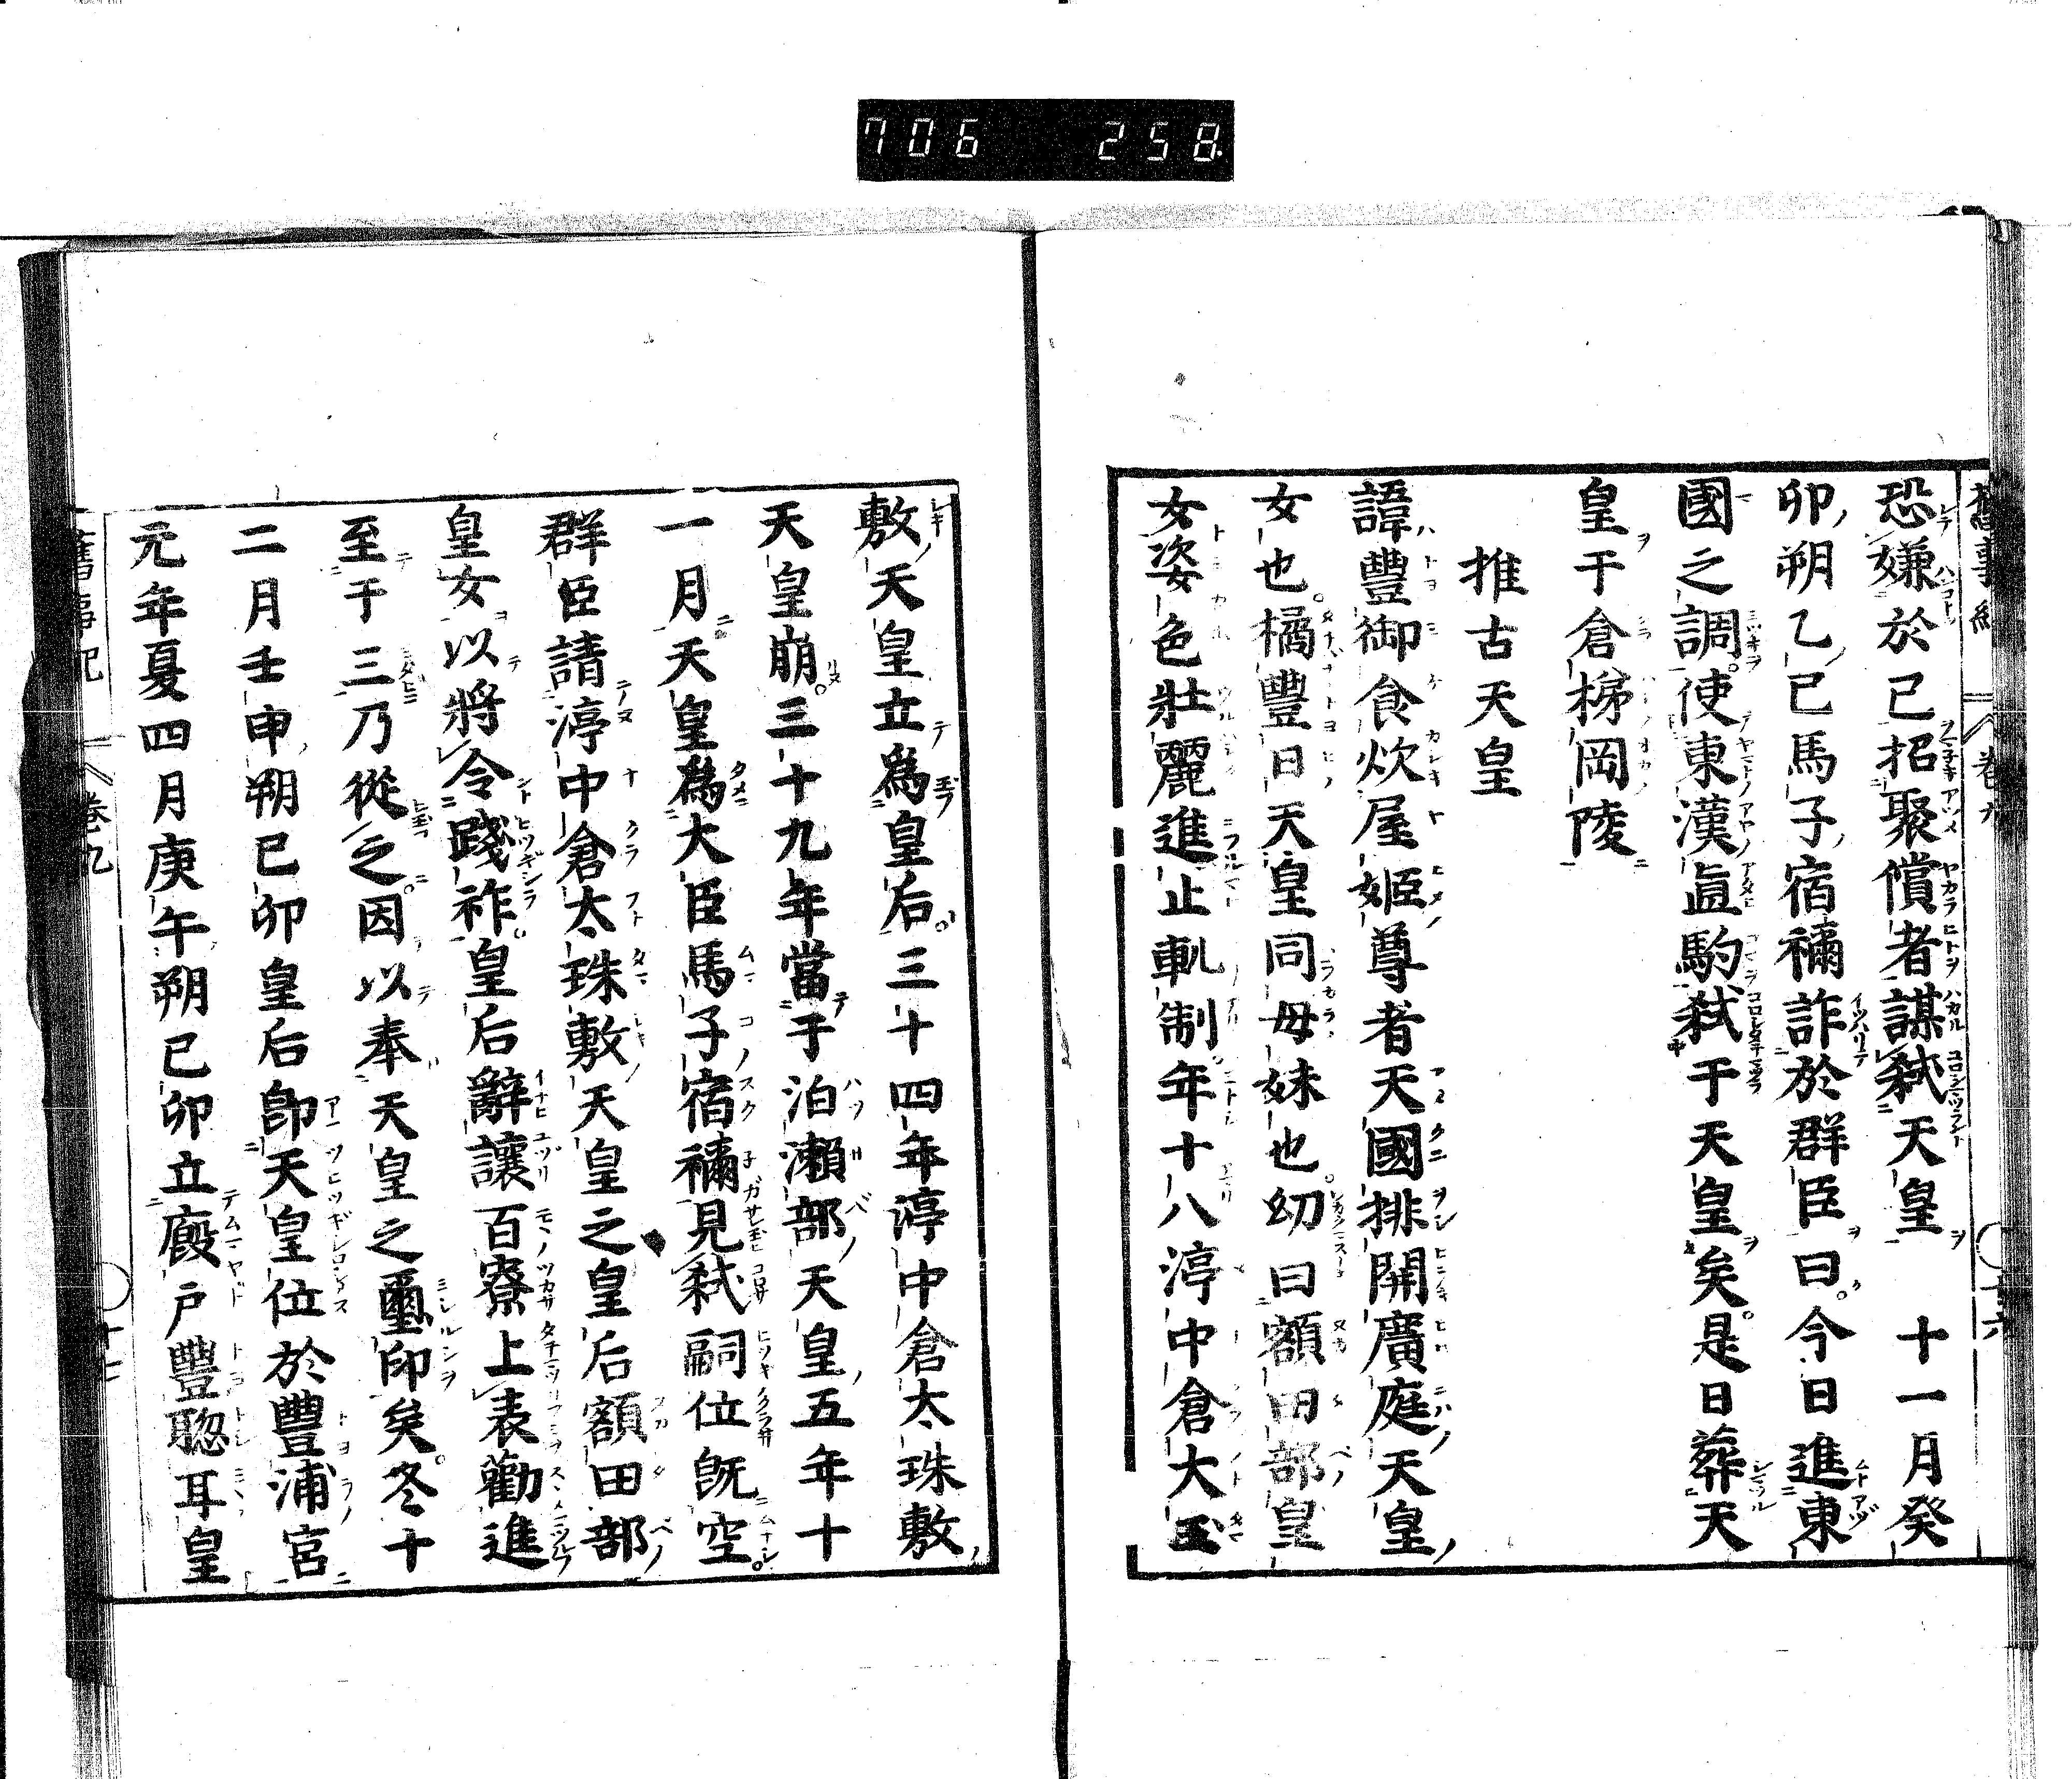 706 258
恐嫌於己招聚償者謀弑天皇 十一月癸
卯朔乙巳馬子宿禰詐於群臣曰今日進東
國之調使東漢直駒弑于天皇矣是日葬天
皇于倉梯岡陵
推古天皇
諱豐御食炊屋姬尊者天國排開廣庭天皇
女也橘豐日天皇同母妹也幼曰額田部皇
女姿色壯麗進止軌制年十八渟中倉大玉
敷天皇立爲皇后三十四年渟中倉太珠敷
天皇崩三十九年當于泊瀨部天皇五年十
一月天皇爲大臣馬子宿禰見弑嗣位旣空
群臣請渟中倉太珠敷天皇之皇后額田部
皇女以將令踐祚皇后辭讓百寮上表勸進
至于三乃從之因以奉天皇之璽印矣冬十
二月壬申朔己卯皇后卽天皇位於豐浦宮
元年夏四月庚午朔己卯立廐戶豐聰耳皇
舊事記 卷九 十七